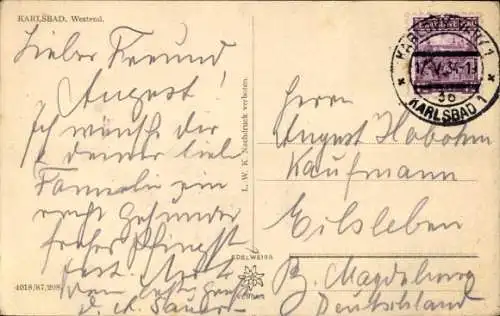 KARLSBAD. Westend.
Lieber Freund
August!
Ich wünsche dir
& deiner lieb
Familie ein
recht gesundes
frohes Pfingst
fest.
den besten Gruß
L. W. K. Nachdruck verboten.
4018/87/298
EDELWEISS
17.V.34-1
3b
KARLSBAD 1
Herrn
August Hobohm
Kaufmann
Eilsleben
Bz. Magdeburg
Deutschland